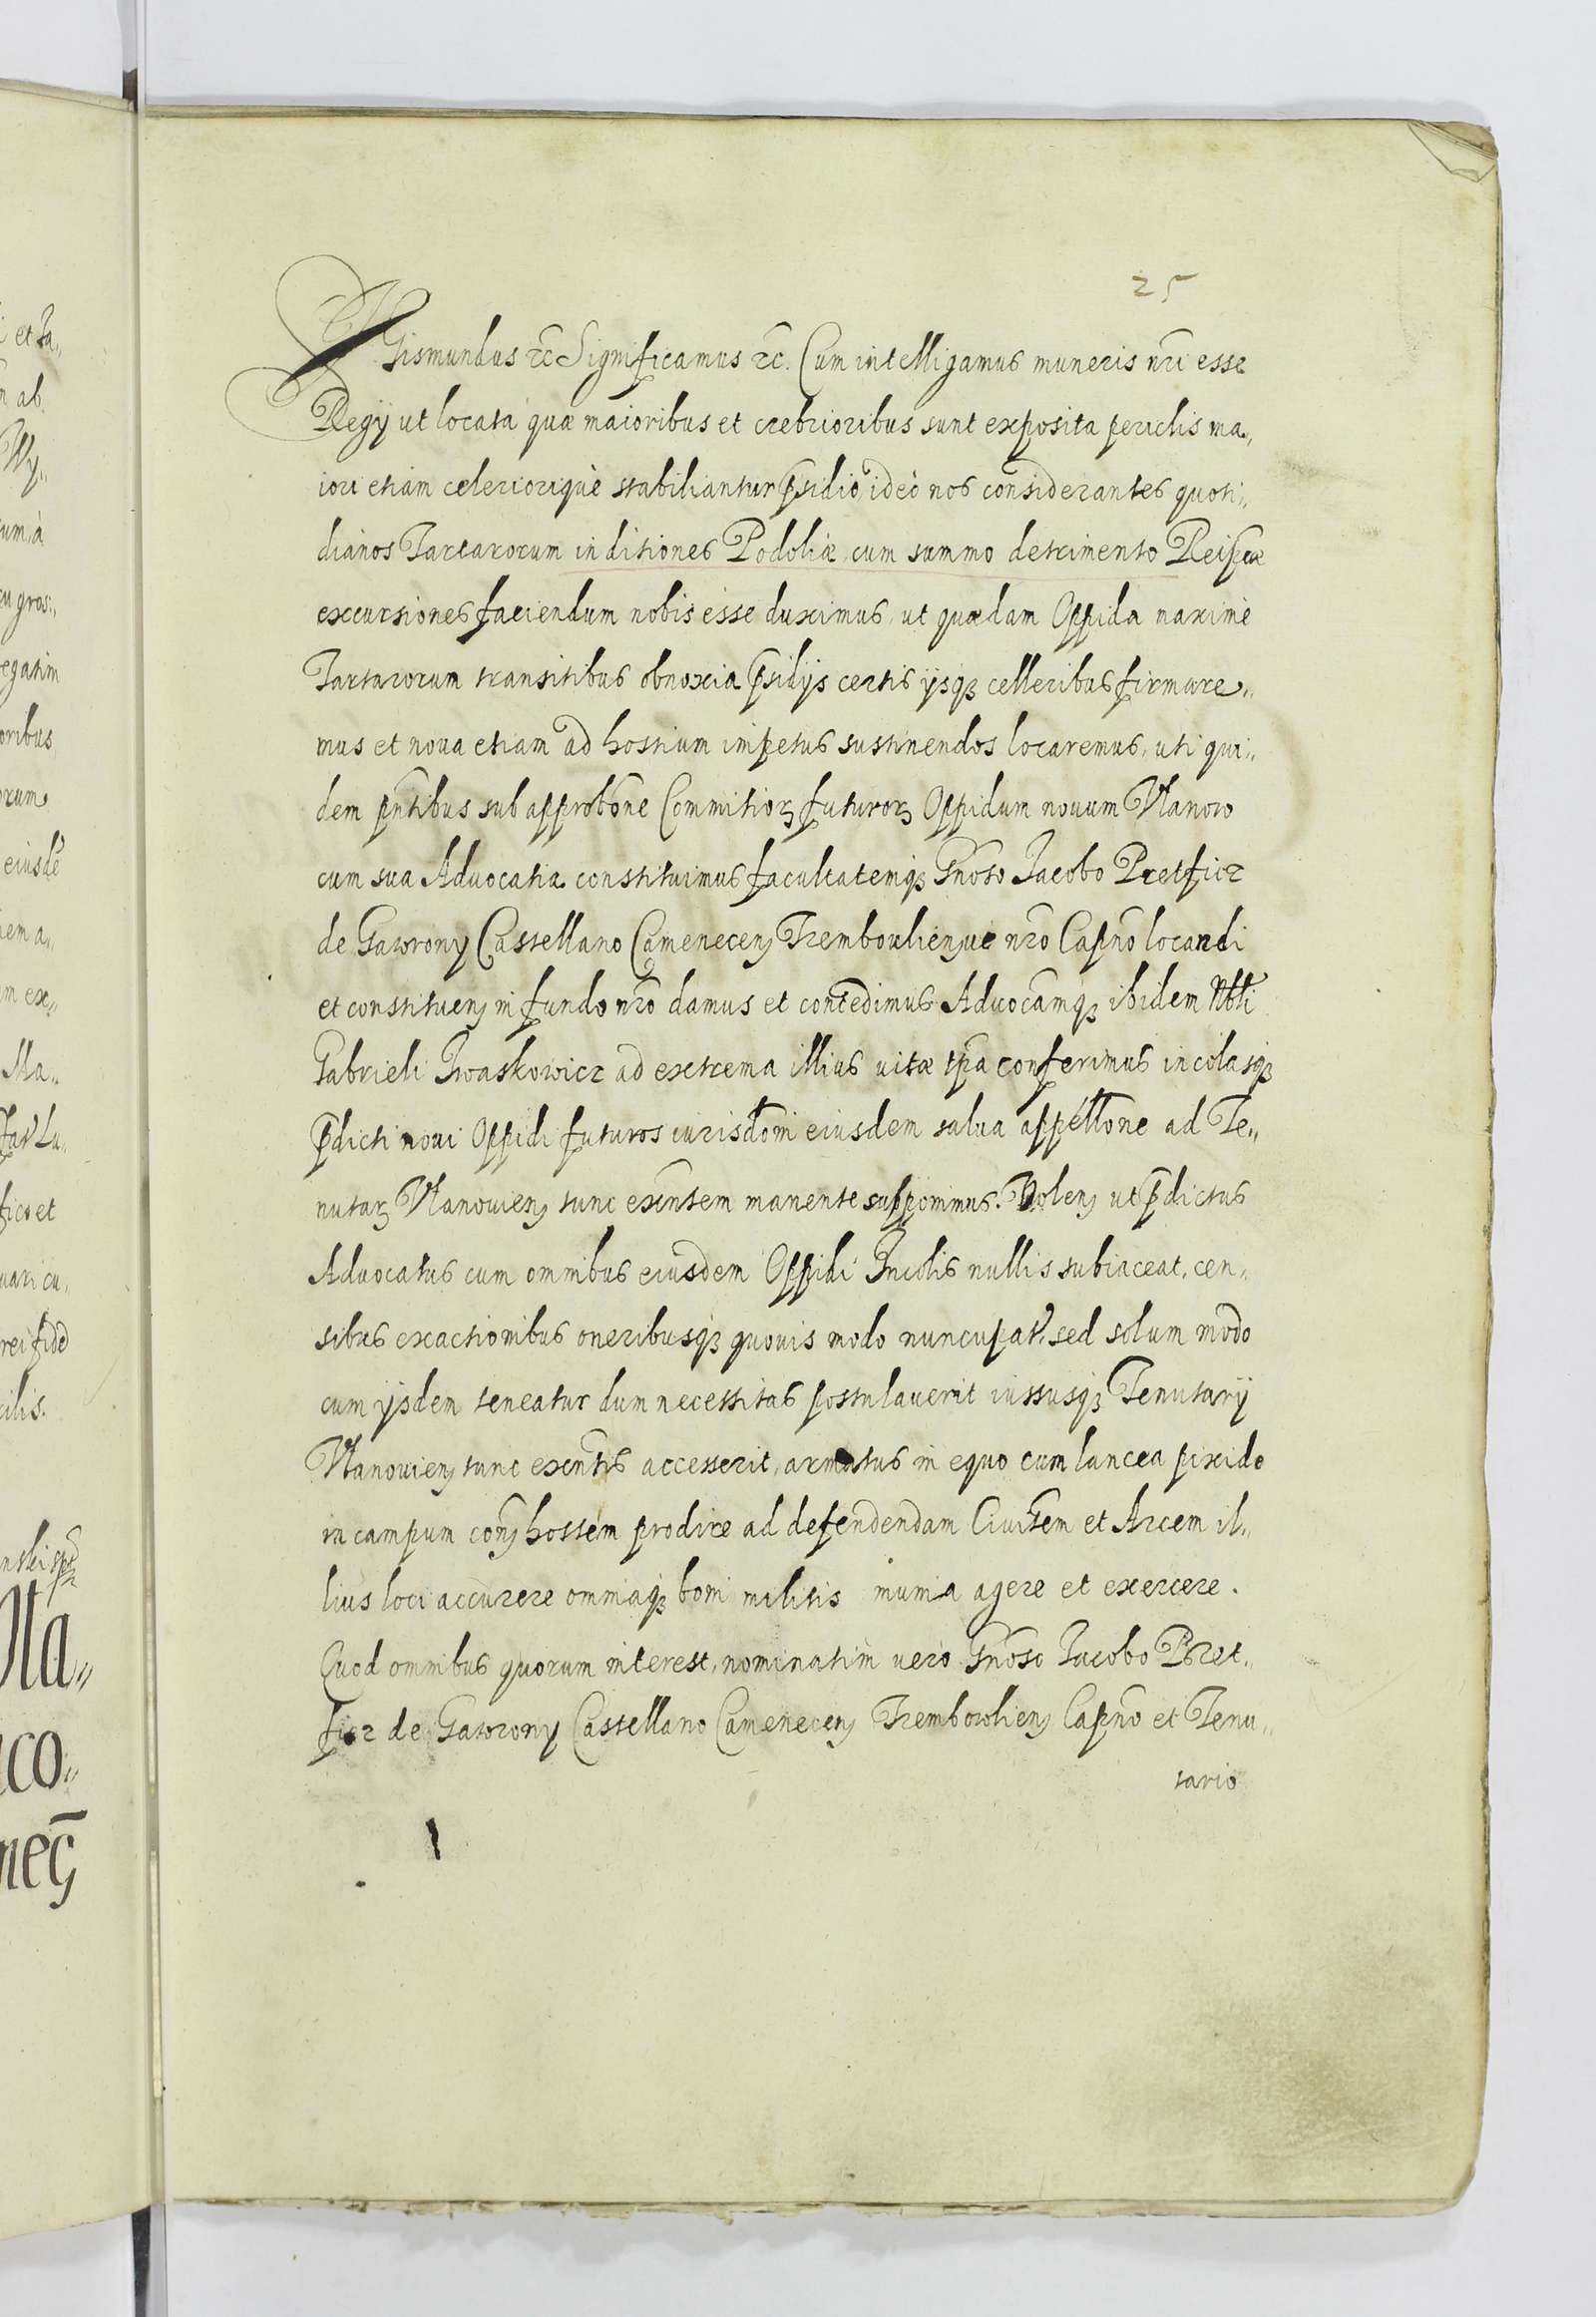 25
Sigismundus etc Significamus etc. Cum intelligamus muneris nri esse
Regÿ ut locata quæ maioribus et crebrioribus sunt exposita periclis ma„
iori etiam celeriorique stabiliantur psidio ideo nos considerantes quoti„
dianos Tartarorum in ditiones Podoliæ cum summo detrimento Reipcæ
excursiones faciendum nobis esse duximus, ut quædam Oppida maxime
Tartarorum transitibus obnoxia psidijs certis ijsq celleribus firmare„
mus et noua etiam ad hostium impetus sustinendos locaremus, uti qui„
dem pntibus sub approbone Commitior futuror Oppidum nouum Vlanow
cum sua Aduocatia constituimus facultatemq Gnoso Jacobo Pretficz
de Gaworony Castellano Camenecen Tremboulien̄ue nro Capno locandi
et constituen in fundo nro damus et concedimus Aduocamq ibidem Nbli
Gabrieli Iwaskowicz ad extrema illius uitæ tpra conferimus incolasq
pdicti noui Oppidi futuros iurisdoni eiusdem salua appellone ad Te„
nutar Vlanouien tunc exntem manente supponimus. Volen ut pdictus
Aduocatus cum omnibus eiusdem Oppidi Incolis nullis subiaceat, cen„
sibus exactionibus oneribusq quouis modo nuncupat. sed solum modo
cum ijsdem teneatur dum necessitas postulauerit iussusq Tenutarij
Vlanouien tunc exntis accesserit, armatus in equo cum lancea pixide
in campum con hostem prodire ad defendendam Ciuitem et Arcem il„
lius loci accurere omniaq boni militis munia agere et exercere.
Quod omnibus quorum interest, nominatim uero Gnoso Jacobo Pret„
ficz de Gaworony Castellano Camenecen Trembowlien Capno et Tenu„
tario